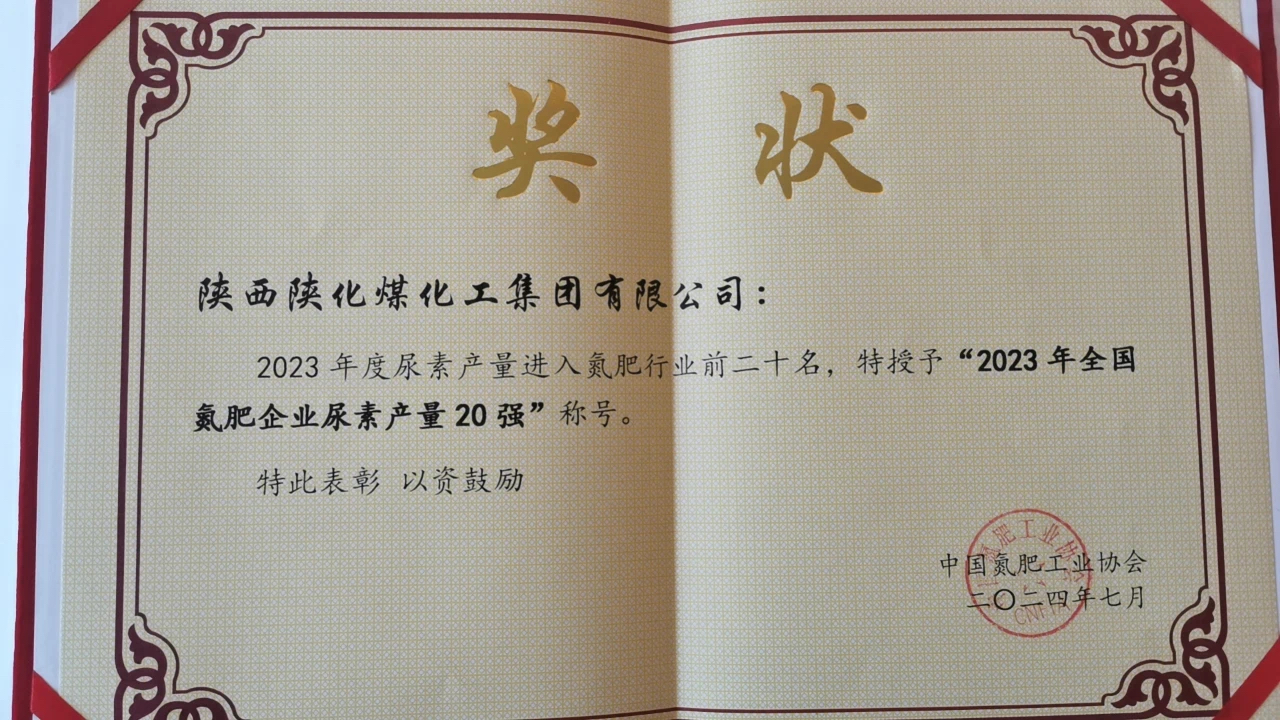 奖状
陕西陕化煤化工集团有限公司：
2023 年度尿素产量进入氮肥行业前二十名，特授予“2023 年全国
氮肥企业尿素产量 20 强”称号。
特此表彰 以资鼓励
中国氮肥工业协会
二〇二四年七月